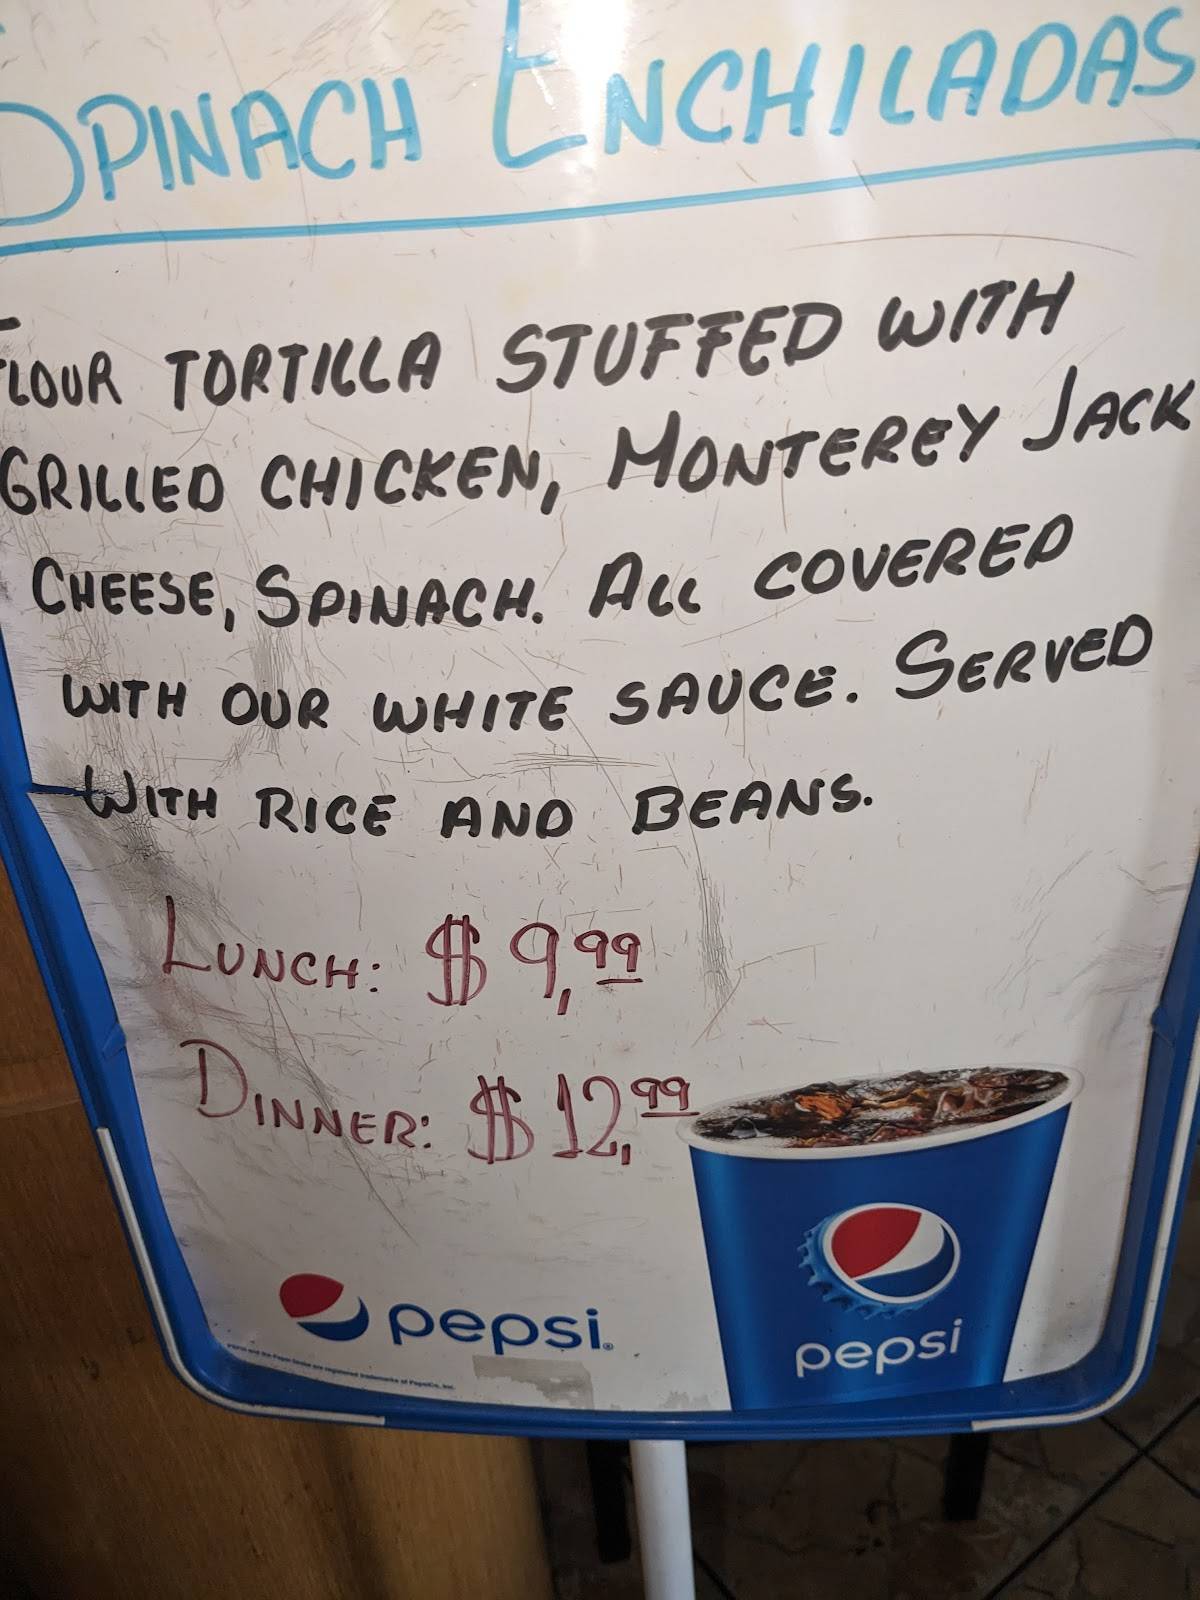 SPINACH ENCHILADAS
FLOUR TORTILLA STUFFED WITH
GRILLED CHICKEN, MONTEREY JACK
CHEESE, SPINACH. ALL COVERED
WITH OUR WHITE SAUCE. SERVED
WITH RICE AND BEANS.
LUNCH: $9,99
DINNER: $12,99
pepsi®
pepsi